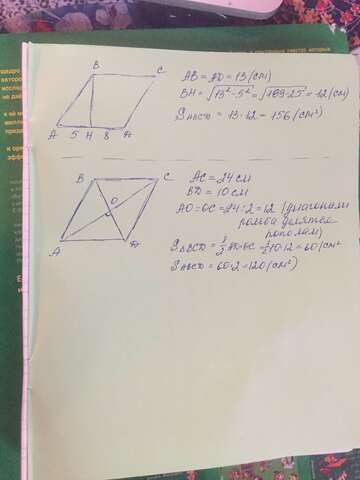 B
C
A 5 H 8 D
AB = AD = 13 (см)
BH = √13² - 5² = √169-25 = 12 (см)
SABCD = 13 · 12 = 156 (см²)
B
C
O
A
D
AC = 24 см
BD = 10 см
AO = OC = 24 : 2 = 12 (диагонали
ромба делятся
пополам)
SΔBCD = 1/2 BD · OC 1/2 10 · 12 = 60 (см²
SABCD = 60 · 2 = 120 (см²)